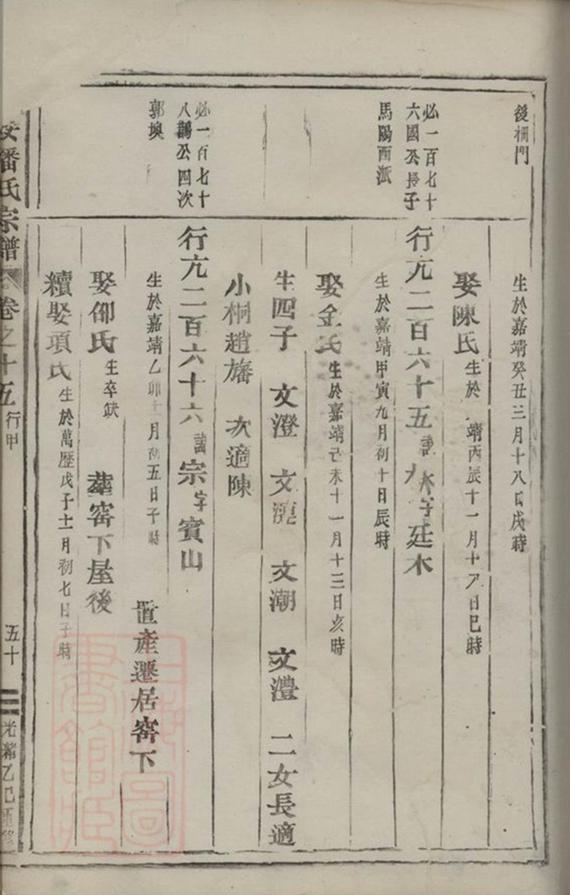 後柵門
生於嘉靖癸丑三月十八日戌時
娶陳氏 生於 靖丙辰十一月十八日巳時
必一百七十
六國公長子
馬陽西派
行亢二百六十五 諱 字廷木
生於嘉靖甲寅九月初十日辰時
娶金氏 生於嘉靖己未十一月十三日亥時
生四子 文澄 文 文潮 文澧 二女長適
小桐趙旛 次適陳
必一百七十
八鵲公四次
郭墺
行亢二百六十六 諱宗字賓山
生於嘉靖乙卯十二月初五日子時 置產遷居窰下
娶邵氏 生卒缺 葬窰下屋後
續娶項氏 生於萬歷戊子十二月初七日子時
潘氏宗譜 卷之十五 行甲 五十 光緒乙巳重修